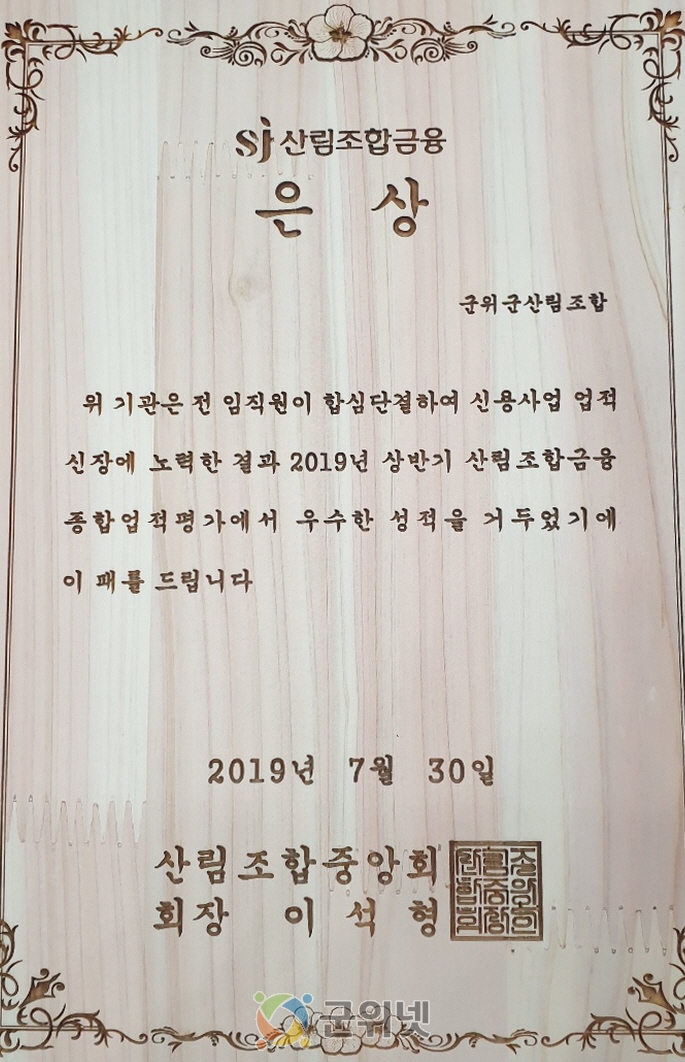 sj 산림조합금융
은 상
군위군산림조합
위 기관은 전 임직원이 합심단결하여 신용사업 업적
신장에 노력한 결과 2019년 상반기 산림조합금융
종합업적평가에서 우수한 성적을 거두었기에
이 패를 드립니다
2019년 7월 30일
산림조합중앙회
회장 이석형
군위넷